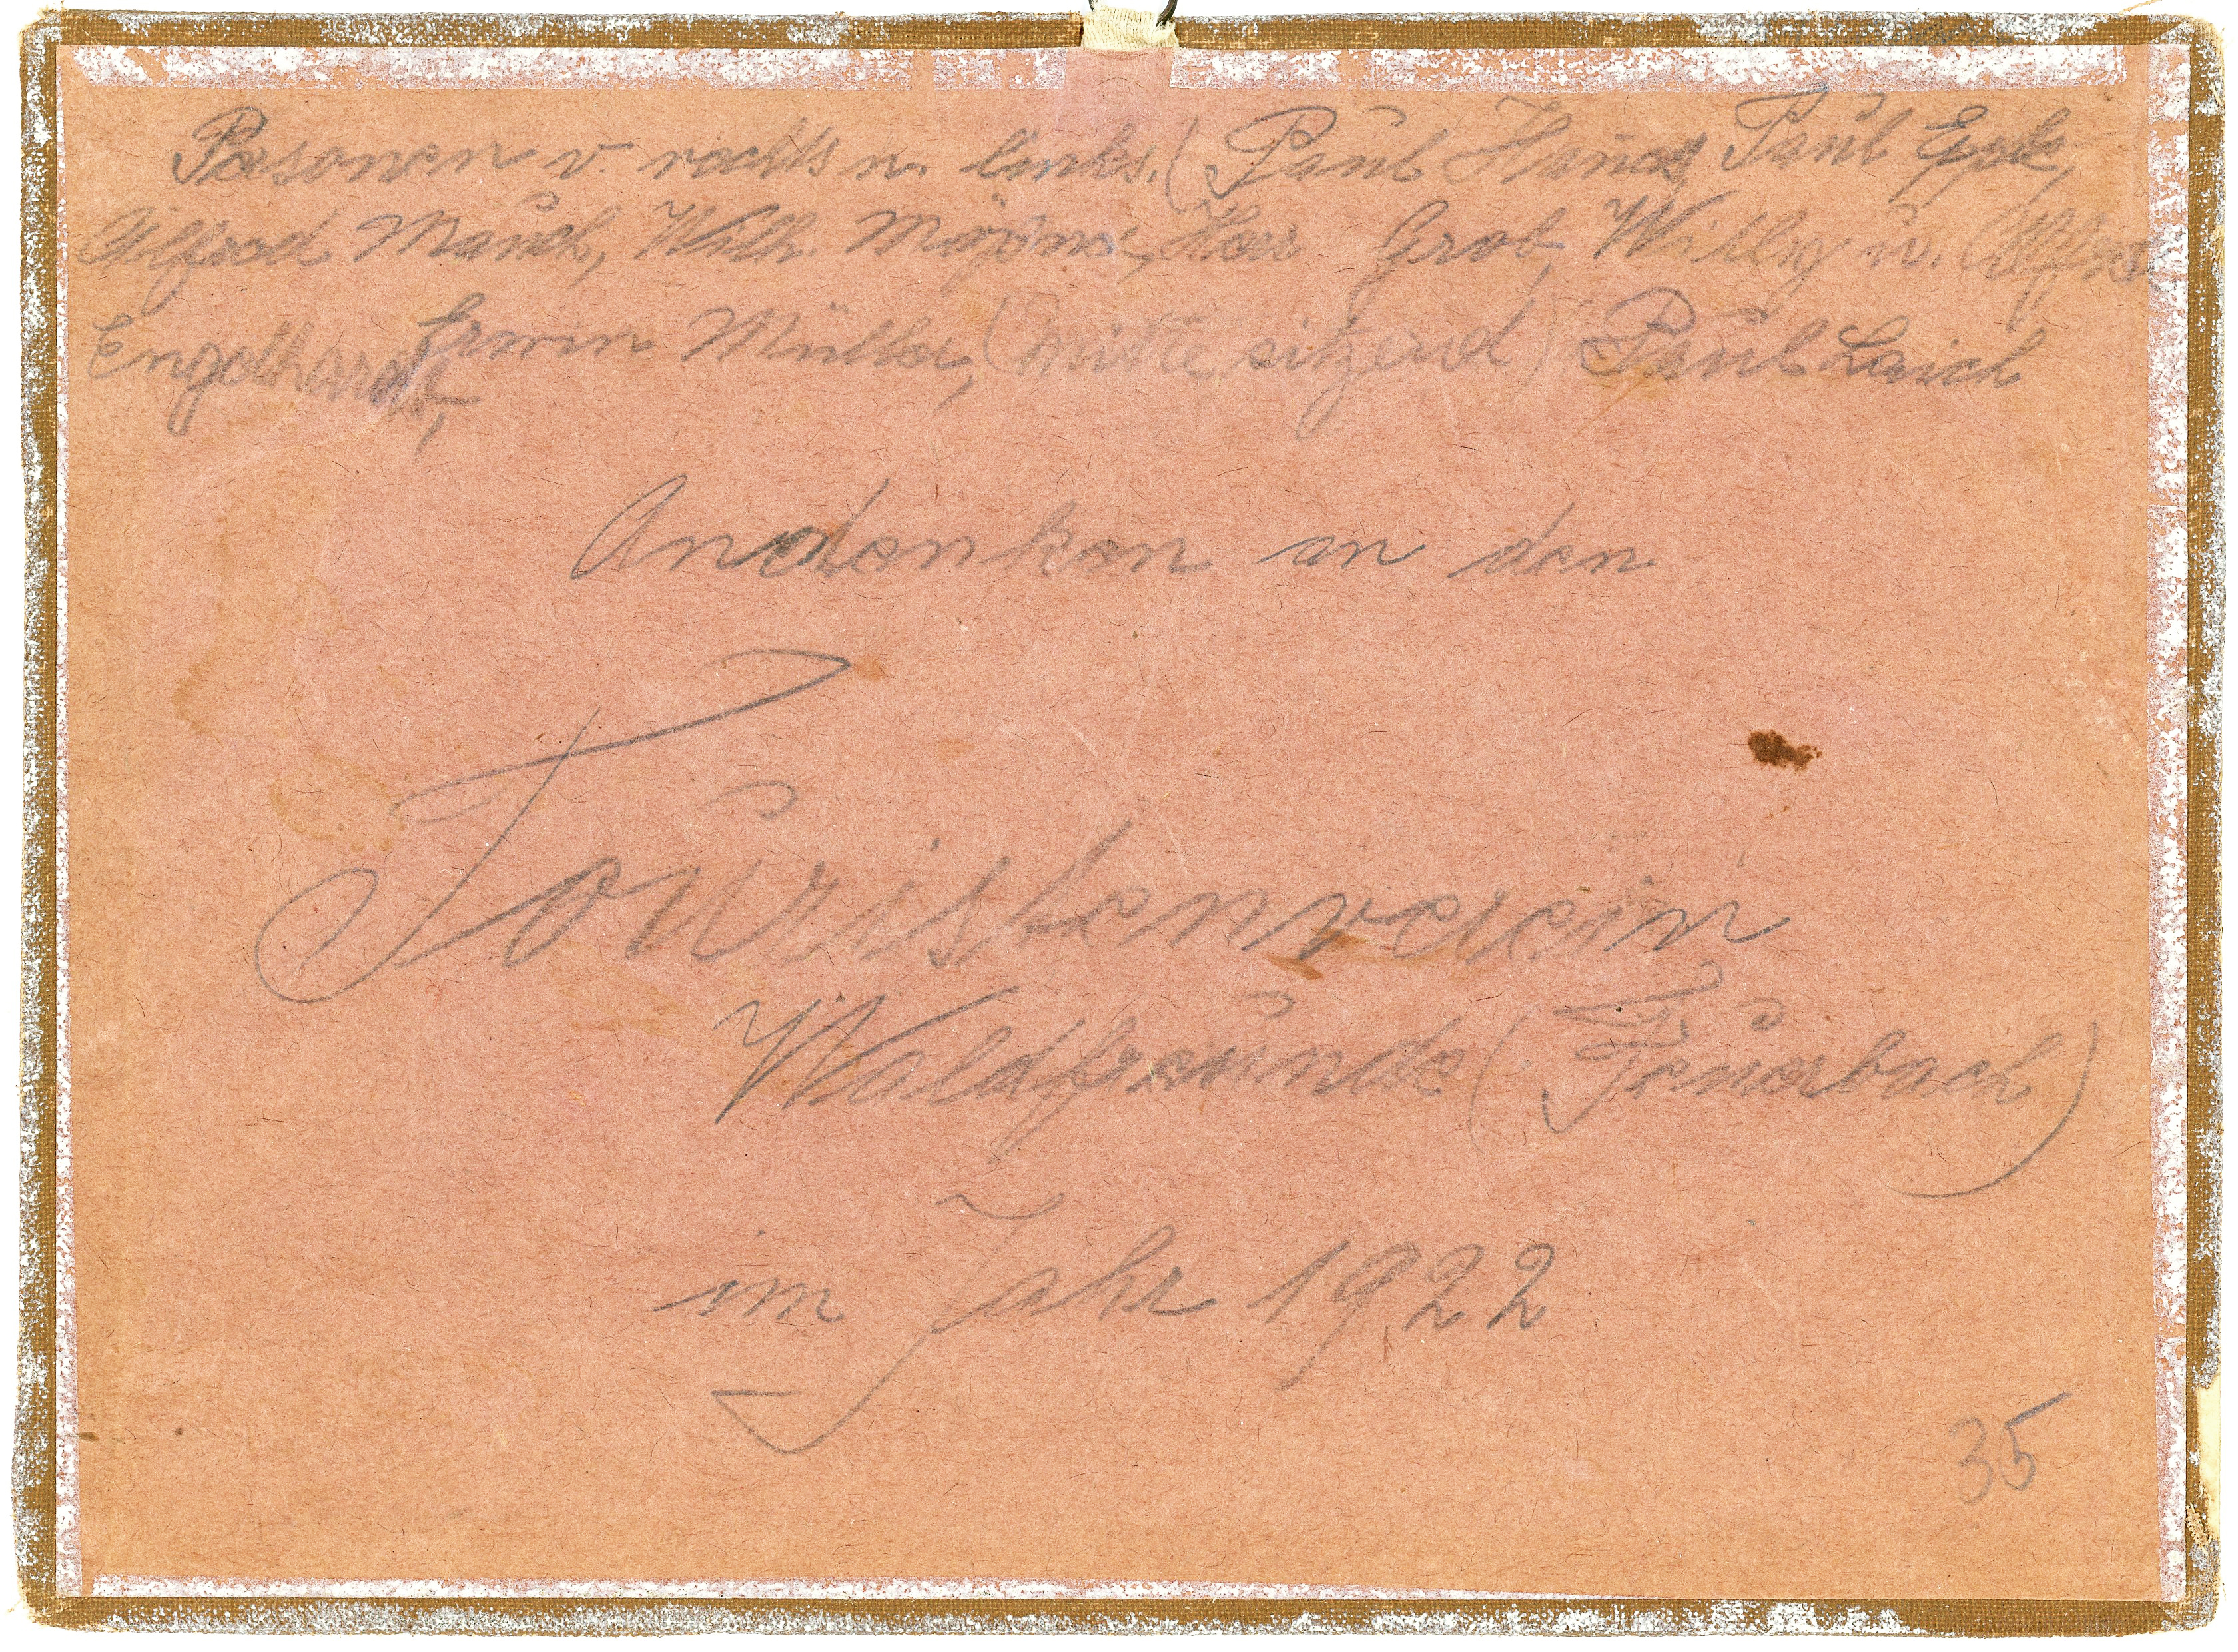 Personen v. rechts n. links. (Paul Hauch, Paul Epple,
Alfred Mauch, Wilh. Herr Grob, Willy u. Alfred
Engelhardt, Erwin Müller, (mitte sitzend) Paul Laich
Andenken an den
Touristenverein
Waldfreunde (Feuerbach)
im Jahr 1922
35